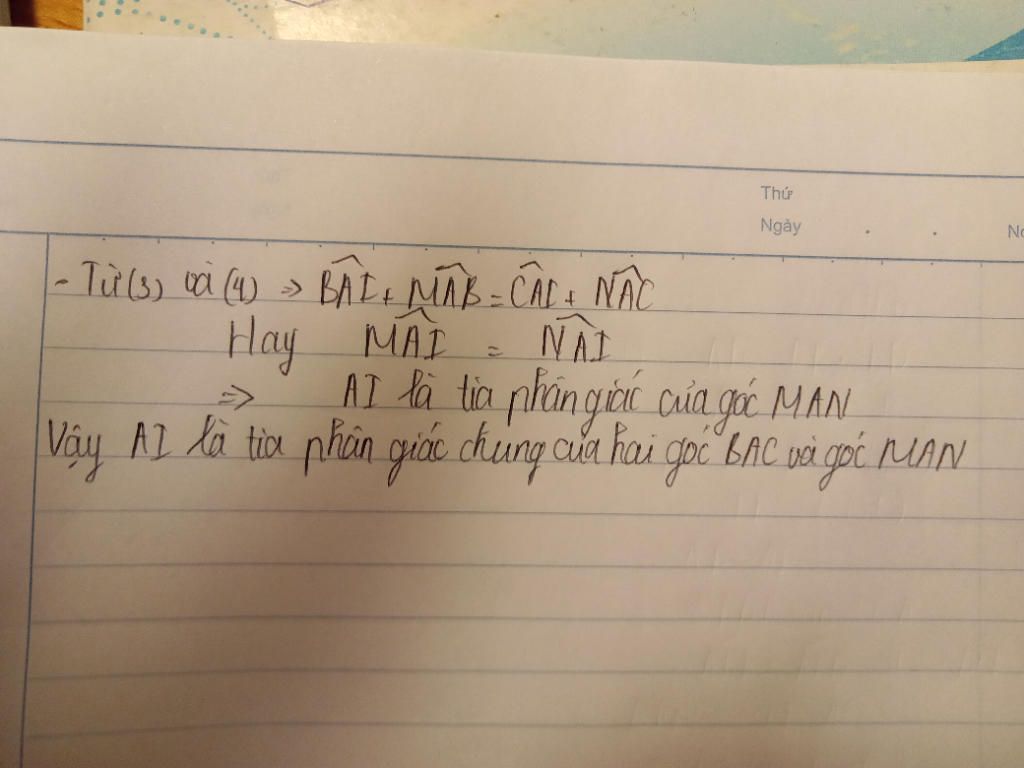 Thứ
Ngày
No
- Từ (3) và (4) => BAI + MAB = CAI + NAC
Hay MAI = NAI
=> AI là tia phân giác của góc MAN
Vậy AI là tia phân giác chung của hai góc BAC và góc MAN